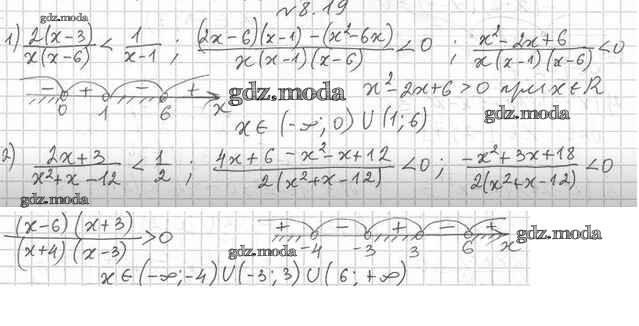 №8.19
gdz.moda
1) 2(x-3)/x(x-6) < 1/x-1 ; (2x-6)(x-1)-(x²-6x)/x(x-1)(x-6) < 0 ; x²-2x+6/x(x-1)(x-6) < 0
- + - + gdz.moda x²-2x+6>0 при x∈R
0 1 6 x gdz.moda
x∈(-∞; 0)∪(1; 6)
2) 2x+3/x²+x-12 < 1/2 ; 4x+6-x²-x+12/2(x²+x-12) < 0 ; -x²+3x+18/2(x²+x-12) < 0
gdz.moda
(x-6)(x+3)/(x+4)(x-3) > 0 + - + - + gdz.moda
gdz.moda -4 -3 3 6 x
x∈(-∞; -4)∪(-3; 3)∪(6; +∞)